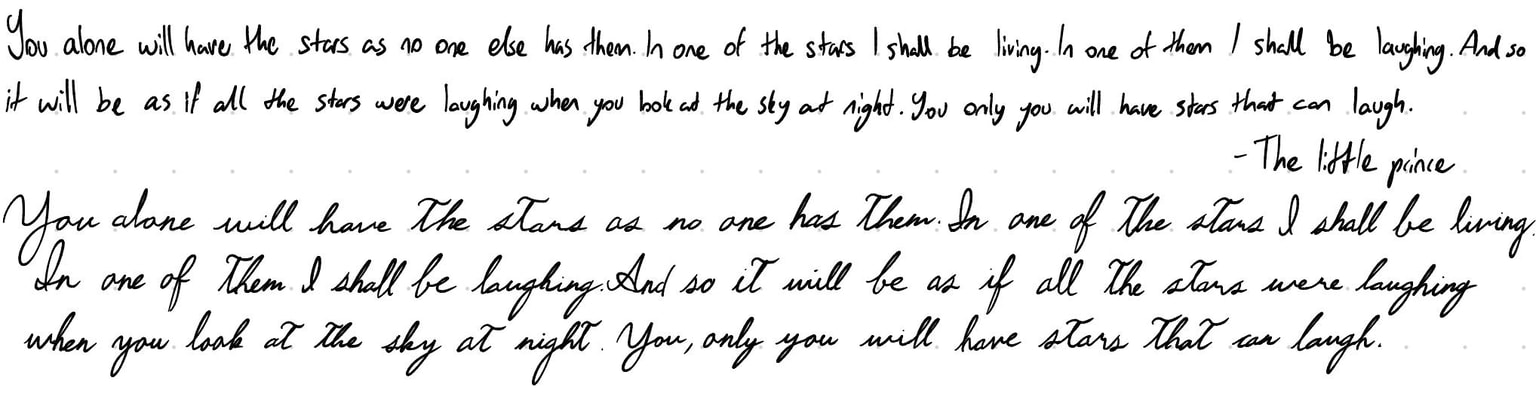 You alone will have the stars as no one else has them. In one of the stars I shall be living. In one of them I shall be laughing. And so
it will be as if all the stars were laughing when you look at the sky at night. You only you will have stars that can laugh.
- The little prince
You alone will have the stars as no one has them. In one of the stars I shall be living.
In one of them I shall be laughing. And so it will be as if all the stars were laughing
when you look at the sky at night. You, only you will have stars that can laugh.